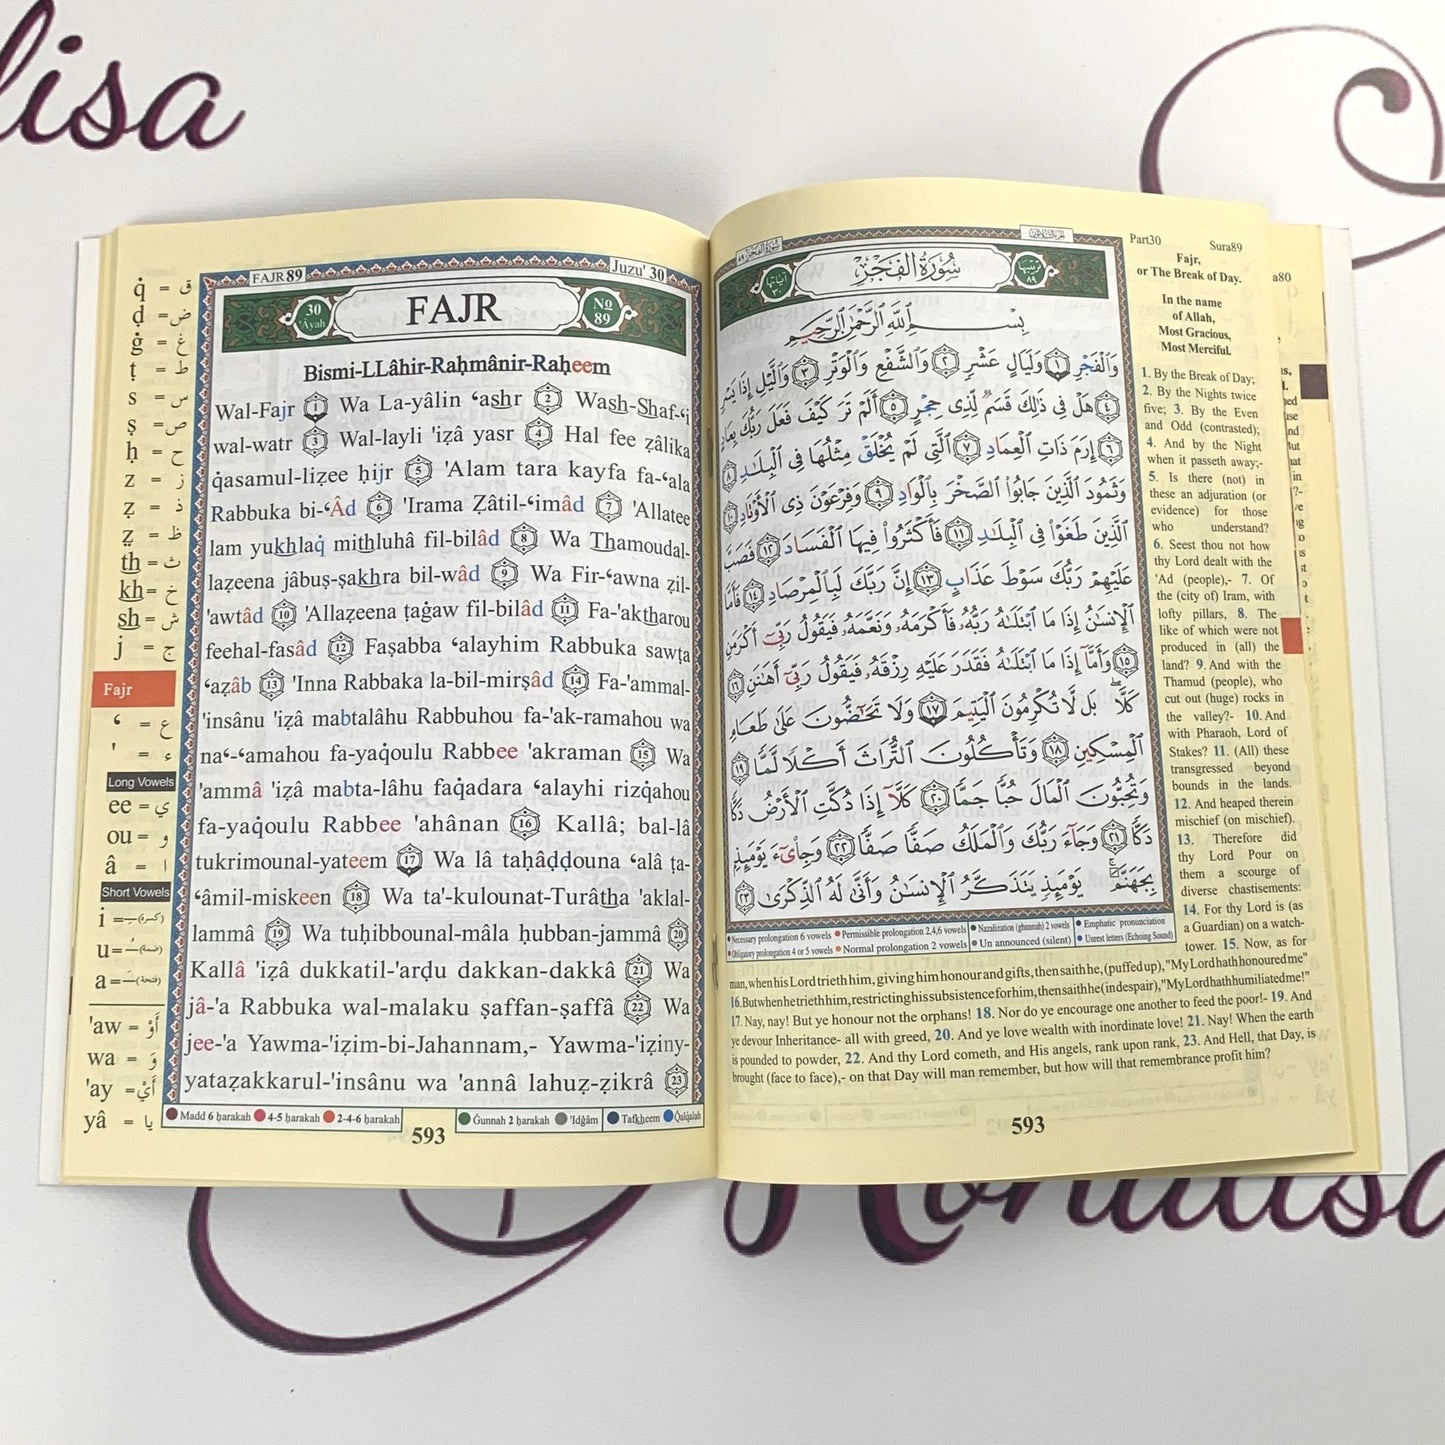 lisa
FAJR 89
Juzu' 30
30
'Âyah
FAJR
No
89
Bismi-LLâhir-Raḥmânir-Raḥeem
Wal-Fajr 1 Wa La-yâlin ‘ashr 2 Wash-Shaf-‘i
wal-watr 3 Wal-layli 'iẓâ yasr 4 Hal fee ẓâlika
q̇asamul-liẓee ḥijr 5 'Alam tara kayfa fa-‘ala
Rabbuka bi-‘Âd 6 'Irama Ẓâtil-‘imâd 7 'Allatee
lam yukhlaq̇ mithluhâ fil-bilâd 8 Wa Thamoudal-
laẓeena jâbuṣ-ṣakhra bil-wâd 9 Wa Fir-‘awna ẓil-
'awtâd 10 'Allaẓeena ṭaġaw fil-bilâd 11 Fa-'aktharou
feehal-fasâd 12 Faṣabba ‘alayhim Rabbuka sawṭa
‘aẓâb 13 'Inna Rabbaka la-bil-mirṣâd 14 Fa-'ammal-
'insânu 'iẓâ mabtalâhu Rabbuhou fa-'ak-ramahou wa
na‘-‘amahou fa-yaq̇oulu Rabbee 'akraman 15 Wa
'ammâ 'iẓâ mabta-lâhu faq̇adara ‘alayhi rizq̇ahou
fa-yaq̇oulu Rabbee 'ahânan 16 Kallâ; bal-lâ
tukrimounal-yateem 17 Wa lâ taḥâḍḍouna ‘alâ ṭa-
‘âmil-miskeen 18 Wa ta'-kulounat-Turâtha 'aklal-
lammâ 19 Wa tuḥibbounal-mâla ḥubban-jammâ 20
Kallâ 'iẓâ dukkatil-'arḍu dakkan-dakkâ 21 Wa
jâ-'a Rabbuka wal-malaku ṣaffan-ṣaffâ 22 Wa
jee-'a Yawma-'iẓim-bi-Jahannam,- Yawma-'iẓiny-
yataẓakkarul-'insânu wa 'annâ lahuẓ-ẓikrâ 23
Madd 6 ḥarakah 4-5 ḥarakah 2-4-6 ḥarakah Ġunnah 2 ḥarakah 'Idġâm Tafkheem Q̇alq̇alah
593
q̇ = ق
ḍ = ض
ġ = غ
ṭ = ط
s = س
ṣ = ص
ḥ = ح
z = ز
ẓ = ذ
ẓ̤ = ظ
th = ث
kh = خ
sh = ش
j = ج
Fajr
‘ = ع
' = ء
Long Vowels
ee = ي
ou = و
â = ا
Short Vowels
i = (كسرة)
u = (ضمة)
a = (فتحة)
'aw = أَوْ
wa = وَ
'ay = أَيْ
yâ = يا
سُورَةُ الفَجْرِ ٨٩
الجزء الثلاثون
ترتيبها
٨٩
سُورَةُ الفَجْرِ
آياتها
٣٠
بِسْمِ ٱللَّهِ ٱلرَّحْمَٰنِ ٱلرَّحِيمِ
وَٱلْفَجْرِ ١ وَلَيَالٍ عَشْرٍ ٢ وَٱلشَّفْعِ وَٱلْوَتْرِ ٣ وَٱلَّيْلِ إِذَا يَسْرِ
٤ هَلْ فِى ذَٰلِكَ قَسَمٌ لِّذِى حِجْرٍ ٥ أَلَمْ تَرَ كَيْفَ فَعَلَ رَبُّكَ بِعَادٍ
٦ إِرَمَ ذَاتِ ٱلْعِمَادِ ٧ ٱلَّتِى لَمْ يُخْلَقْ مِثْلُهَا فِى ٱلْبِلَٰدِ ٨
وَثَمُودَ ٱلَّذِينَ جَابُوا۟ ٱلصَّخْرَ بِٱلْوَادِ ٩ وَفِرْعَوْنَ ذِى ٱلْأَوْتَادِ ١٠
ٱلَّذِينَ طَغَوْا۟ فِى ٱلْبِلَٰدِ ١١ فَأَكْثَرُوا۟ فِيهَا ٱلْفَسَادَ ١٢ فَصَبَّ
عَلَيْهِمْ رَبُّكَ سَوْطَ عَذَابٍ ١٣ إِنَّ رَبَّكَ لَبِٱلْمِرْصَادِ ١٤ فَأَمَّا
ٱلْإِنسَٰنُ إِذَا مَا ٱبْتَلَىٰهُ رَبُّهُۥ فَأَكْرَمَهُۥ وَنَعَّمَهُۥ فَيَقُولُ رَبِّىٓ أَكْرَمَنِ
١٥ وَأَمَّآ إِذَا مَا ٱبْتَلَىٰهُ فَقَدَرَ عَلَيْهِ رِزْقَهُۥ فَيَقُولُ رَبِّىٓ أَهَٰنَنِ ١٦
كَلَّا ۖ بَل لَّا تُكْرِمُونَ ٱلْيَتِيمَ ١٧ وَلَا تَحَٰٓضُّونَ عَلَىٰ طَعَامِ
ٱلْمِسْكِينِ ١٨ وَتَأْكُلُونَ ٱلتُّرَاثَ أَكْلًا لَّمًّا ١٩
وَتُحِبُّونَ ٱلْمَالَ حُبًّا جَمًّا ٢٠ كَلَّآ إِذَا دُكَّتِ ٱلْأَرْضُ دَكًّا
دَكًّا ٢١ وَجَآءَ رَبُّكَ وَٱلْمَلَكُ صَفًّا صَفًّا ٢٢ وَجِا۟ىٓءَ يَوْمَئِذٍۭ
بِجَهَنَّمَ ۚ يَوْمَئِذٍ يَتَذَكَّرُ ٱلْإِنسَٰنُ وَأَنَّىٰ لَهُ ٱلذِّكْرَىٰ ٢٣
Necessary prolongation 6 vowels Permissible prolongation 2,4,6 vowels Nazalization (ghunnah) 2 vowels Emphatic pronunciation
Obligatory prolongation 4 or 5 vowels Normal prolongation 2 vowels Un announced (silent) Unrest letters (Echoing Sound)
Part30 Sura89
Fajr,
or The Break of Day.
In the name
of Allah,
Most Gracious,
Most Merciful.
1. By the Break of Day;
2. By the Nights twice
five; 3. By the Even
and Odd (contrasted);
4. And by the Night
when it passeth away;-
5. Is there (not) in
these an adjuration (or
evidence) for those
who understand?
6. Seest thou not how
thy Lord dealt with the
'Ad (people),- 7. Of
the (city of) Iram, with
lofty pillars, 8. The
like of which were not
produced in (all) the
land? 9. And with the
Thamud (people), who
cut out (huge) rocks in
the valley?- 10. And
with Pharaoh, Lord of
Stakes? 11. (All) these
transgressed beyond
bounds in the lands.
12. And heaped therein
mischief (on mischief).
13. Therefore did
thy Lord Pour on
them a scourge of
diverse chastisements:
14. For thy Lord is (as
a Guardian) on a watch-
tower. 15. Now, as for
man, when his Lord trieth him, giving him honour and gifts, then saith he, (puffed up), "My Lord hath honoured me"
16. But when he trieth him, restricting his subsistence for him, then saith he (in despair), "My Lord hath humiliated me!"
17. Nay, nay! But ye honour not the orphans! 18. Nor do ye encourage one another to feed the poor!- 19. And
ye devour Inheritance- all with greed, 20. And ye love wealth with inordinate love! 21. Nay! When the earth
is pounded to powder, 22. And thy Lord cometh, and His angels, rank upon rank, 23. And Hell, that Day, is
brought (face to face),- on that Day will man remember, but how will that remembrance profit him?
593
a80